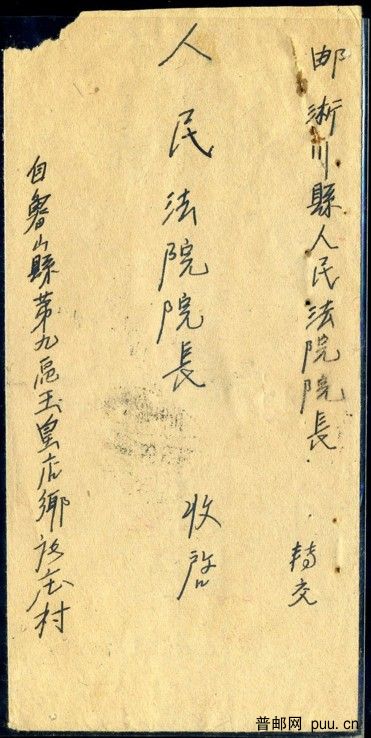 邮淅川縣人民法院院長 轉交
人民法院院長 收啓
自魯山縣第九區玉皇店鄉段庄村
普邮网 puu.cn